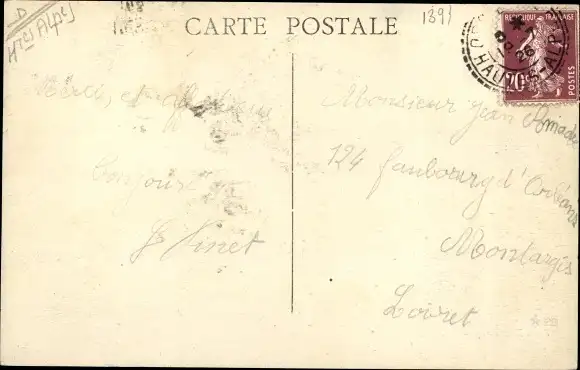 D
Htes Alpes
CARTE POSTALE
1391
RÉPUBLIQUE FRANÇAISE
20c
POSTES
Merci, et affectueux
bonjour
Vinet
Monsieur Jean Amade
124 faubourg d'Orléans
Montargis
Loiret